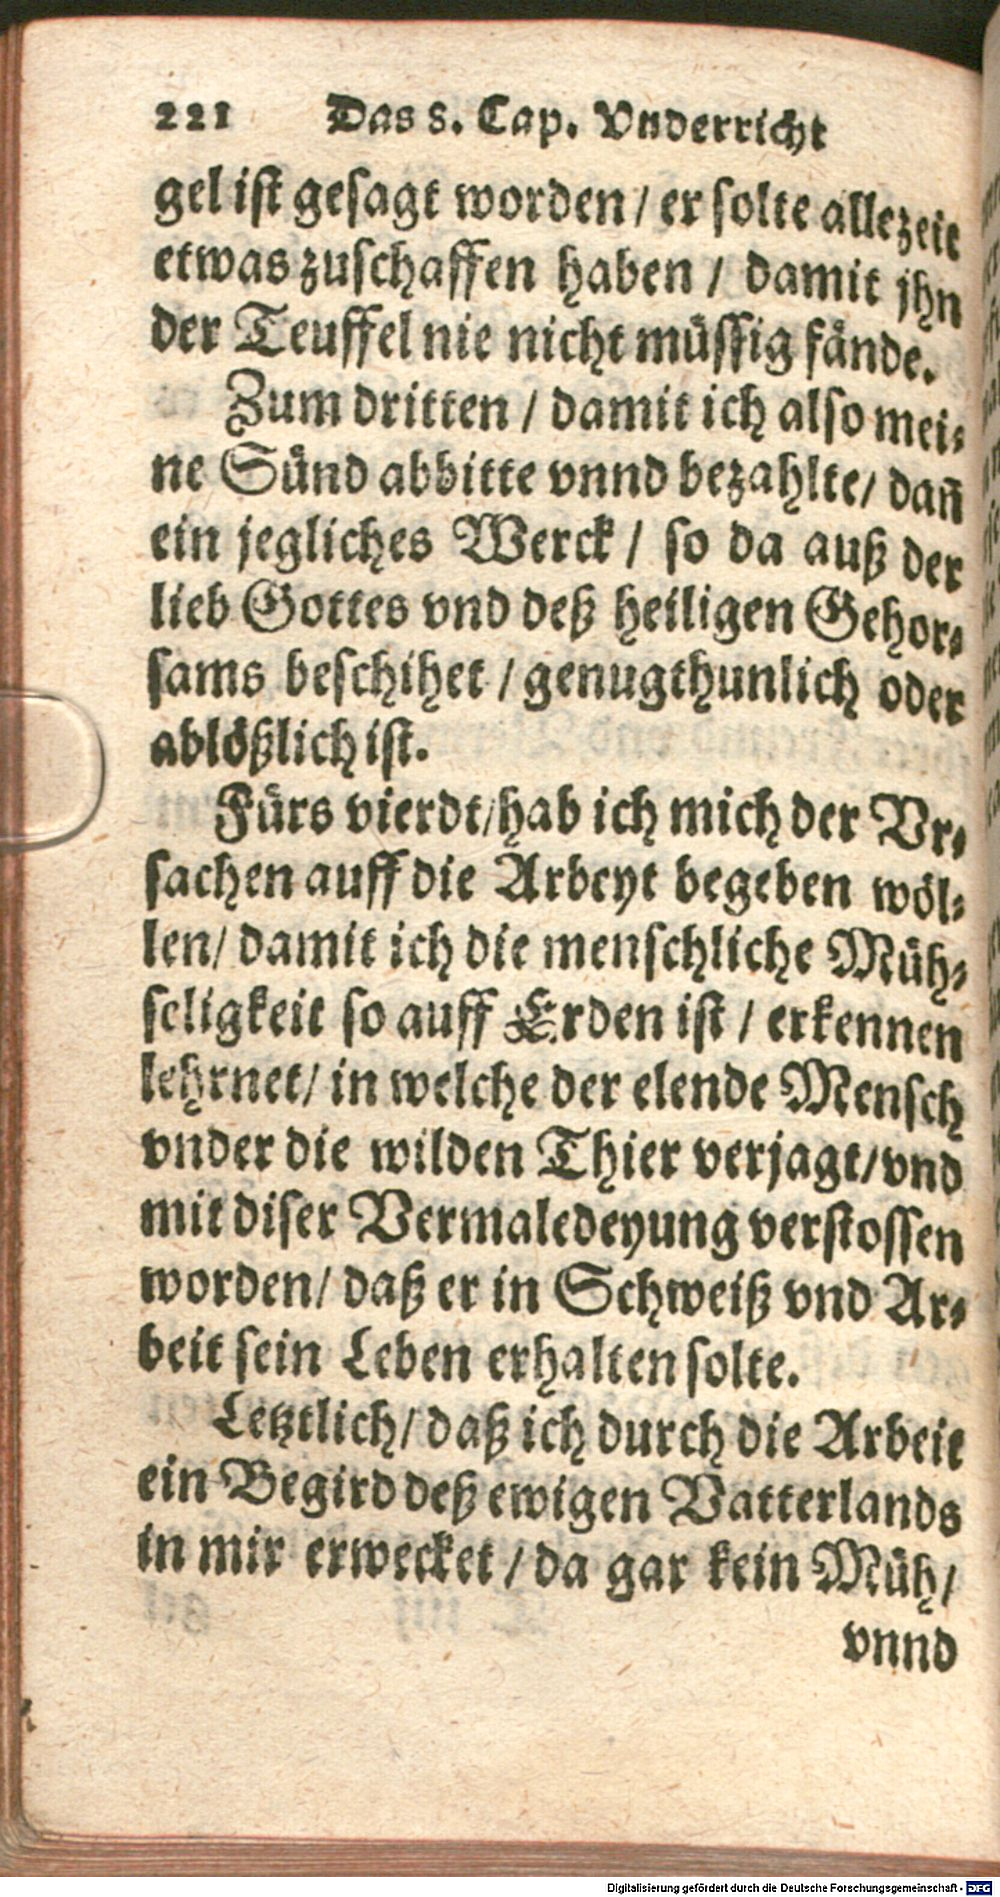 221 Das 8. Cap. Vnderricht
gel ist gesagt worden / er solte allezeit
etwas zuschaffen haben / damit jhn
der Teuffel nie nicht müssig fände.
Zum dritten / damit ich also mei-
ne Sünd abbitte vnnd bezahlte / dañ
ein jegliches Werck / so da auß der
lieb Gottes vnd deß heiligen Gehor-
sams beschihet / genugthunlich oder
ablößlich ist.
Fürs vierdt / hab ich mich der Vr-
sachen auff die Arbeyt begeben wöl-
len / damit ich die menschliche Müh-
seligkeit so auff Erden ist / erkennen
lehrnet / in welche der elende Mensch
vnder die wilden Thier verjagt / vnd
mit diser Vermaledeyung verstossen
worden / daß er in Schweiß vnd Ar-
beit sein Leben erhalten solte.
Letztlich / daß ich durch die Arbeit
ein Begird deß ewigen Vatterlands
in mir erwecket / da gar kein Müh /
vnnd
Digitalisierung gefördert durch die Deutsche Forschungsgemeinschaft - DFG